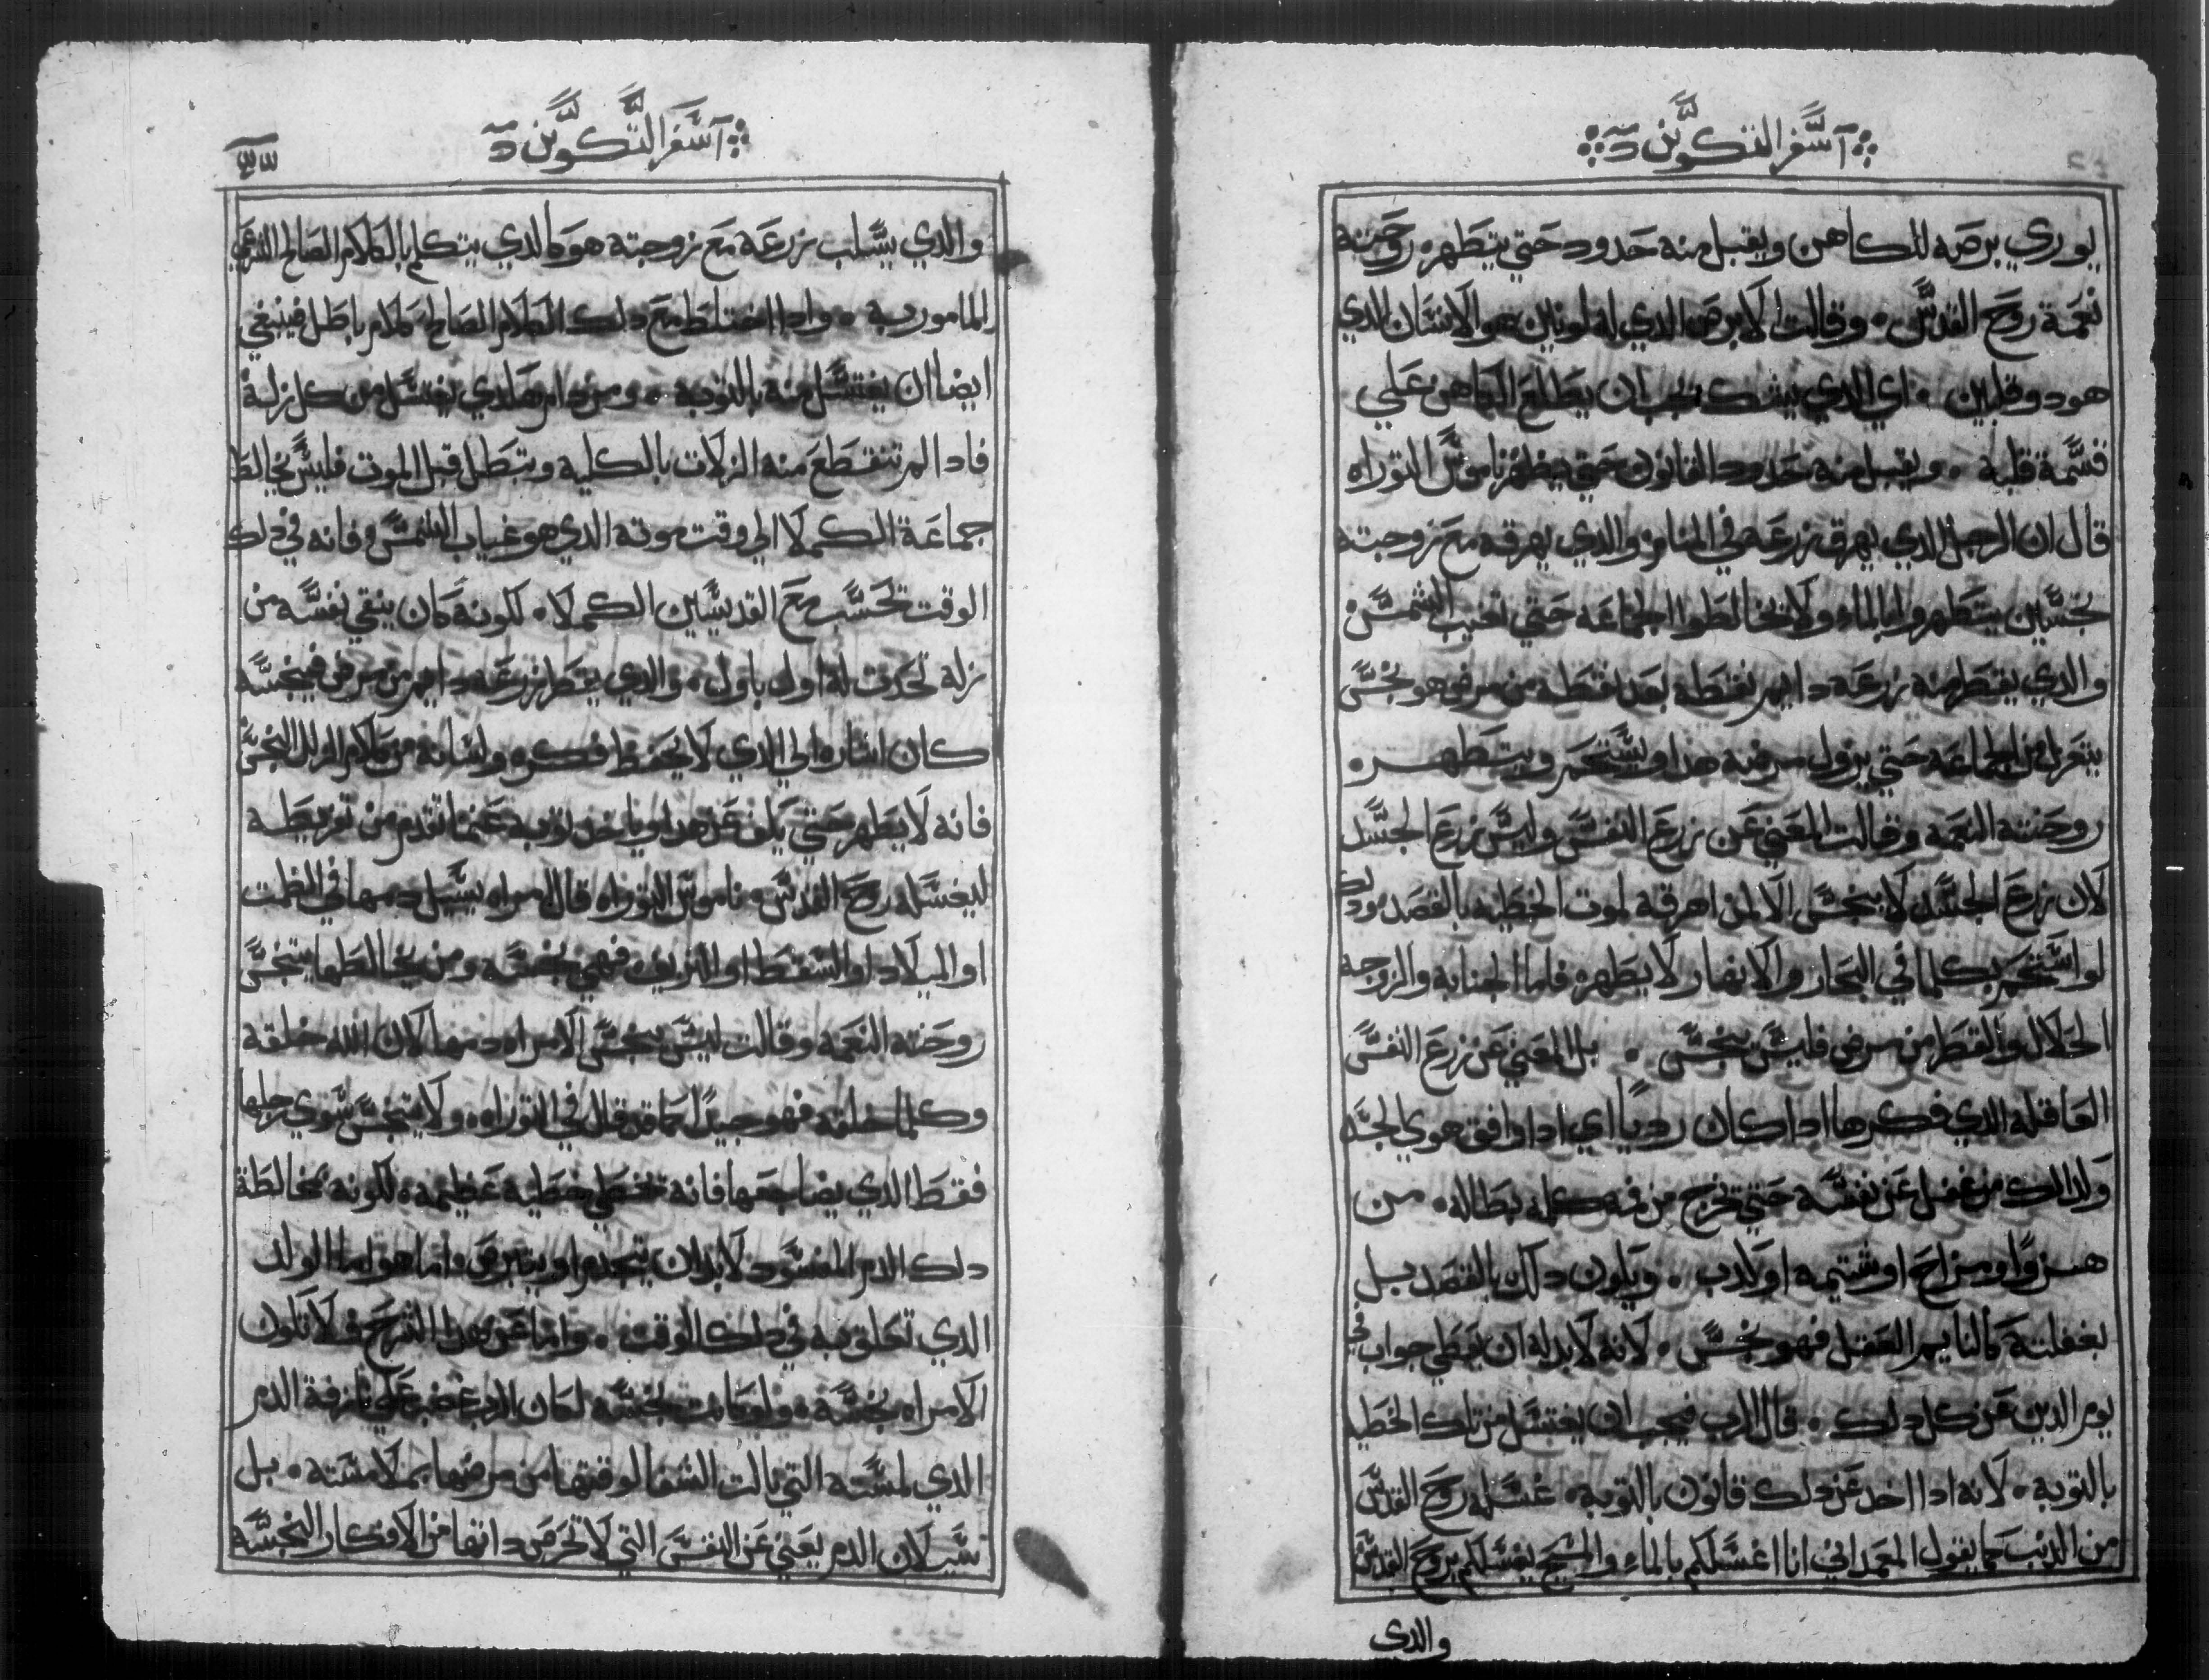 اسفر التكوين د
يوري برصه للكاهن ويقبل منه حدود حتي يتطهر روحنته
نعمة روح القدس وقالت الابرص الدي له لونين هو الانسان الدي
هو دو قلبين اي الدي يشك يجب ان يطلع الكاهن علي
قسمة قلبه ويقبل منه حدود القانون حتي يطهر ناموس التوراه
قال ان الرجل الدي يهرق زرعه في المنام والدي يهرقه مع زوجته
نجسين يتطهروا بالماء ولا يخالطوا الجماعه حتي تغيب الشمس
والدي يقطر منه زرعه دايم نقطه بعد نقطه من مرض هو نجس
يتعزل من الجماعه حتي يزول مرضه هدا ويستحم ويتطهر
روحنته النعمه وقالت المعني عن زرع النفس وليس زرع الجسد
لان زرع الجسد لا ينجس الا لمن اهرقه لموت الخطيه بالقصد ودلك
لو استحم بكلما في البحار والانهار لا يطهر فاما الجنابه والزوجه
الحلال والقطر من مرض فليس ينجس بل المعني عن زرع النفس
العاقله الدي فكرها ادا كان رديًا اي ادا وافق هوي الجسد
ولدالك من غفل عن نفسه حتي تخرج من فمه كلمه بطاله من
هزوًا او مزاح او شتيمه او كدب ويكون دلك بالقصد بل
بغفلته كالنايم العقل فهو نجس لانه لابد له ان يعطي جواب في
يوم الدين عن كل دلك قال الرب فيجب ان يغتسل من تلك الخطيه
بالتوبه لانه ادا اخد عن دلك قانون بالتوبه غسله روح القدس
من الدنب كما يقول المعمداني انا اغسلكم بالماء والمسيح يغسلكم بروح القدس
والدي
اسفر التكوين د
والدي يسلب زرعه مع زوجته هو كالدي يتكلم بالكلام الصالح الشرعي
المامور به وادا اختلط مع دلك الكلام الصالح كلام باطل فينبغي
ايضا ان يغتسل منه بالتوبه ومن دام هكدي يغتسل من كل زلة
فادا لم تنقطع منه الزلات بالكليه وتبطل قبل الموت فليس يخالط
جماعة الكملا الي وقت موته الدي هو غياب الشمس فانه في دلك
الوقت تحسب مع القديسين الكملا لكونه كان ينقي نفسه من
زلة تحدث له اول باول والدي يقطر زرعه دايم من مرض فينجسه
كان اشاره الي الدي لا يحفظ فكره ولسانه من كلام الزلل النجس
فانه لا يطهر حتي يكف عن هدا وياخد توبه عن ما تقدم من تفريطه
ليغسله روح القدس ناموس التوراه قال امراه يسيل دمها في الطمت
او الميلاد او السقط او النزيف فهي نجسه ومن يخالطها يتنجس
روحنته النعمه وقالت ليس ينجس الامراه دمها لان الله خلقه
وكلما خلقه فهو جيدًا كما قد قال في التوراه ولا يتنجس سوي رجلها
فقط الدي يضاجعها فانه تخطي خطيه عظيمه لكونه يخالطة
دلك الدم المفسود لابد ان يتجدم او يتبرص اما هو اما الولد
الدي تعلق به في دلك الوقت واما عن هدا الشرح فلا تكون
الامراه نجسه ولو كانت نجسه لكان الرب غضب علي نازفة الدم
الدي لمسته التي نالت الشفا لوقتها من مرضها بملامسته بل
سيلان الدم يعني عن النفس التي لا تحرص داتها من الافكار النجسه